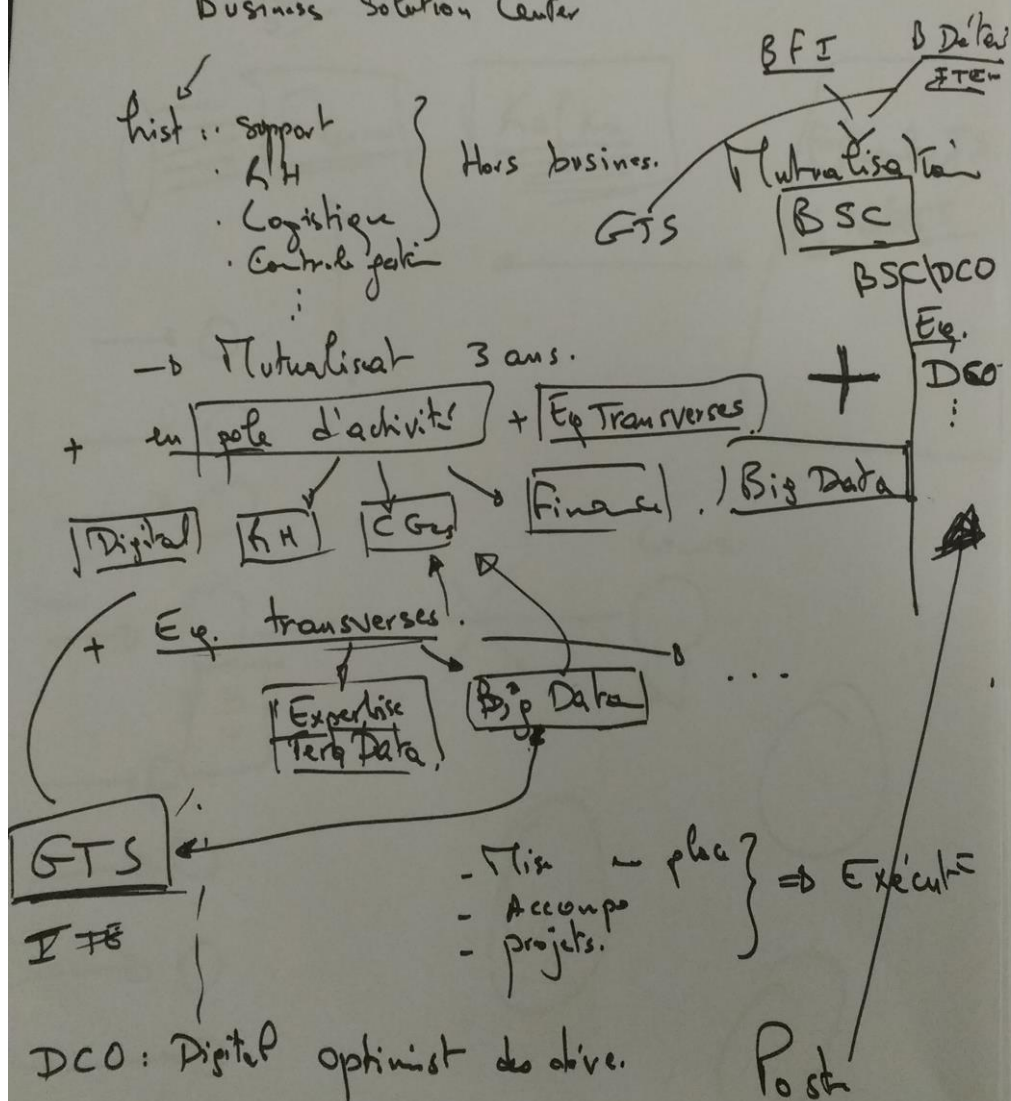 Business Solution Center
BFI
B Détail
hist : . support
. RH
. Logistique
. Controle gestin
⋮
Hors busines.
GTS
Mutualisation
BSC
BSC/DCO
Eq.
DCO
⋮
-> Mutualisat 3 ans.
+ en pole d'activité + Eq Transverses +
Digital RH C Ges Finance . Big Data
+ Eq. transverses.
...
Expertise
Tera Data
Big Data
GTS
- Mise en place
- Accomp
- projets.
=> Exécut
DCO : Digital optimist
Post